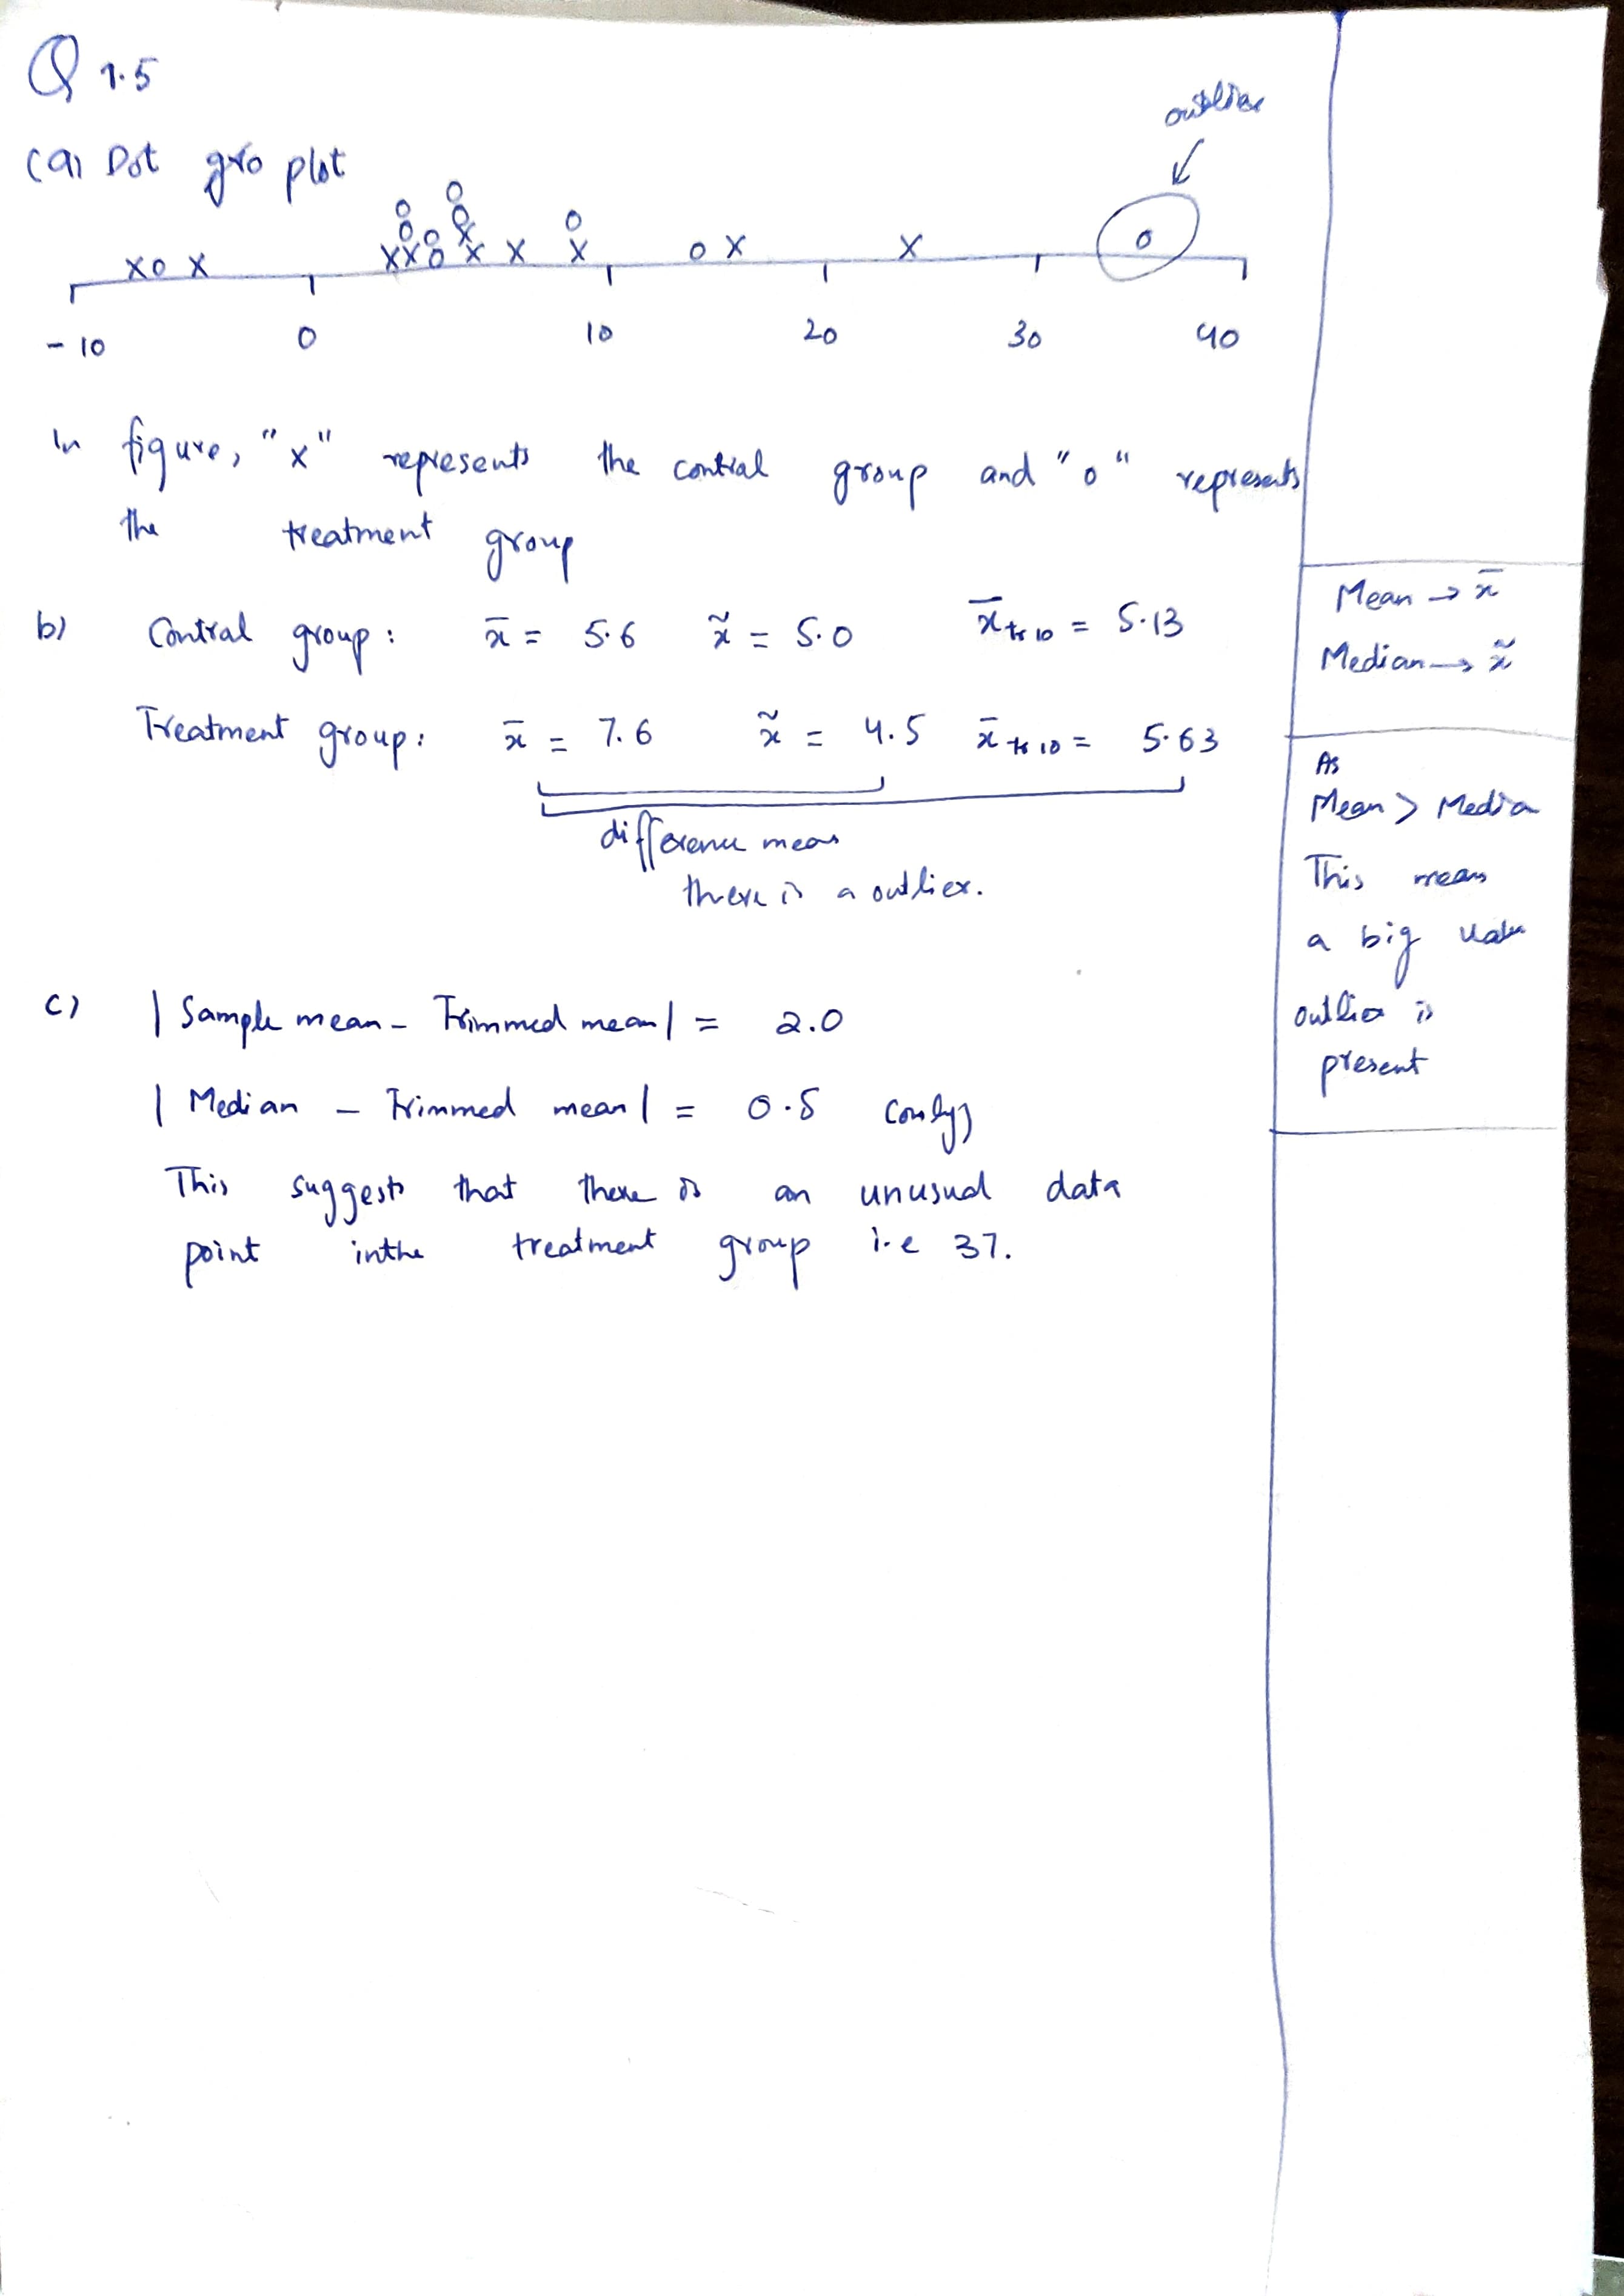 Q 1.5
outlier
(a) Dot gro plot
-10 0 10 20 30 40
In figure, "x" represents the control group and "o" represents
the treatment group
b) Control group: x̄ = 5.6 x̃ = 5.0 x̄ tr 10 = 5.13
Treatment group: x̄ = 7.6 x̃ = 4.5 x̄ tr 10 = 5.63
difference means
there is a outlier.
c) | Sample mean - Trimmed mean | = 2.0
| Median - Trimmed mean | = 0.5 (only)
This suggests that there is an unusual data
point in the treatment group i.e 37.
Mean → x̄
Median → x̃
As
Mean > Media
This means
a big value
outlier is
present